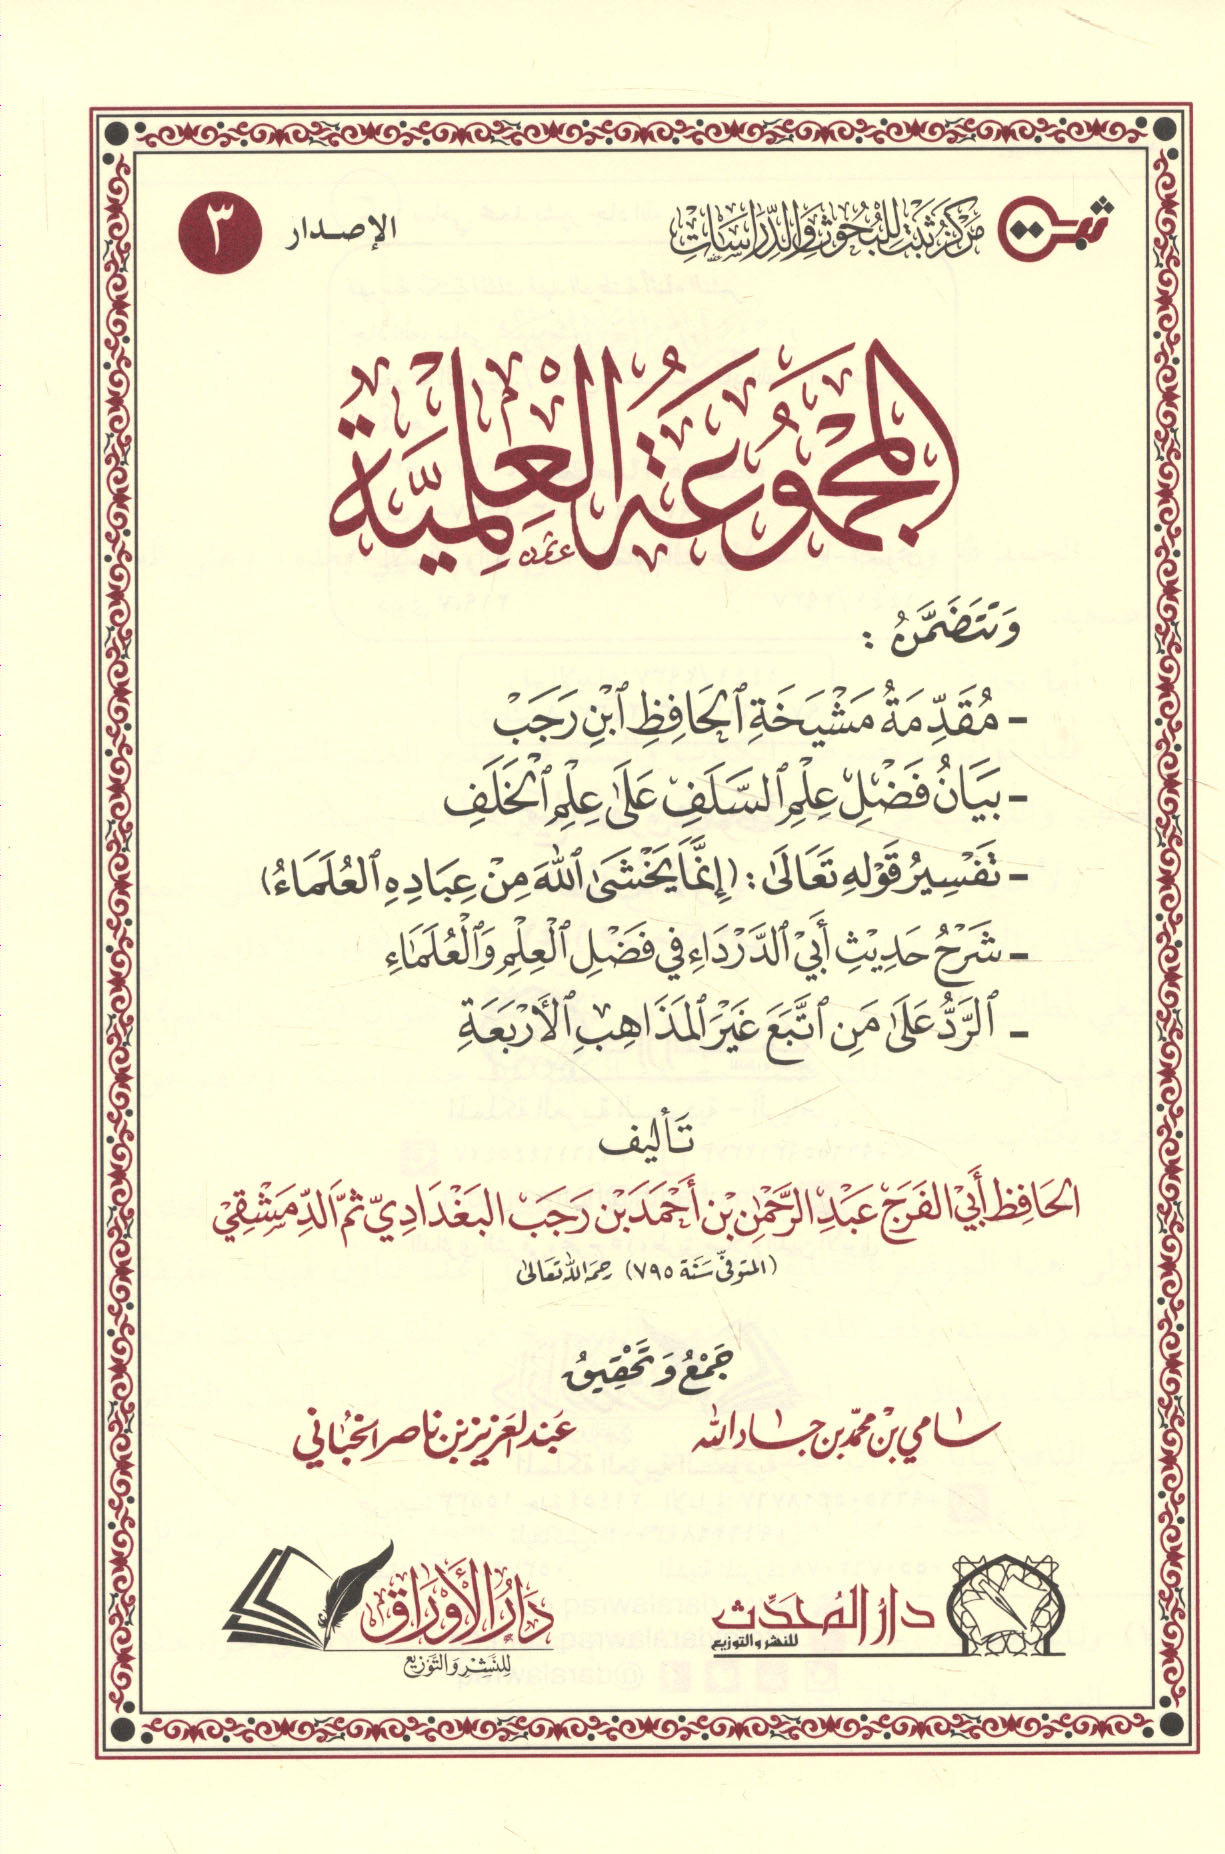 ثبت
مركز ثبت للبحوث والدراسات
الإصدار ٣
المجموعة العلمية
وتتضمن :
- مُقَدِّمَةُ مَشْيَخَةِ ٱلحَافِظِ ٱبْنِ رَجَبْ
- بَيَانُ فَضْلِ عِلْمِ ٱلسَّلَفِ عَلَىٰ عِلْمِ ٱلْخَلَفِ
- تَفْسِيرُ قَوْلِهِ تَعَالَىٰ : (إِنَّمَا يَخْشَى ٱللهَ مِنْ عِبَادِهِ ٱلعُلَمَاءُ)
- شَرْحُ حَدِيْثِ أَبِي ٱلدَّرْدَاءِ فِي فَضْلِ ٱلْعِلْمِ وَٱلْعُلَمَاءِ
- ٱلرَّدُّ عَلَىٰ مَنِ ٱتَّبَعَ غَيْرَ ٱلمَذَاهِبِ ٱلأَرْبَعَةِ
تَأليف
الحَافِظ أَبِي الفَرَج عَبْدِ الرَّحْمٰنِ بْنِ أَحْمَدَ بْنِ رَجَب البَغْدَادِيّ ثمَّ الدِّمَشْقِي
(المتوفى سَنَة ٧٩٥) رحمه الله تعالى
جَمْعُ وَتَحْقِيقُ
سامي بن محمد بن جاد الله
عبد العزيز بن ناصر الخباني
دار المحدث
للنشر والتوزيع
دَارُ الأَوْرَاق
لِلنَّشْرِ وَالتَّوْزِيع